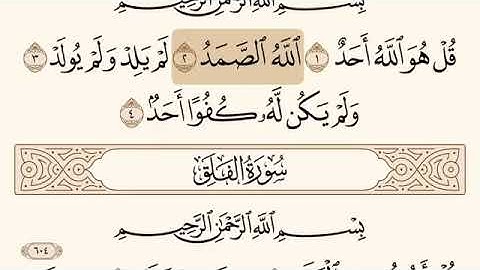 بِسْمِ اللَّهِ الرَّحْمَٰنِ الرَّحِيمِ
قُلْ هُوَ اللَّهُ أَحَدٌ ١ اللَّهُ الصَّمَدُ ٢ لَمْ يَلِدْ وَلَمْ يُولَدْ ٣
وَلَمْ يَكُن لَّهُۥ كُفُوًا أَحَدٌۢ ٤
سُورَةُ الفَلَقِ
بِسْمِ اللَّهِ الرَّحْمَٰنِ الرَّحِيمِ
٦٠٤